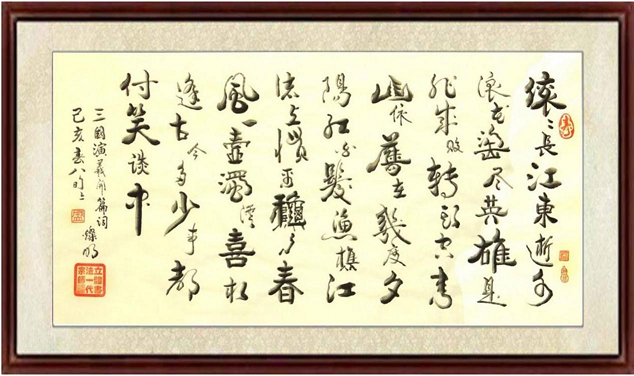 滚滚長江東逝水
浪花淘尽英雄是
非成敗轉頭空青
山依舊在幾度夕
陽紅白髮漁樵江
渚上慣看穐月春
風一壺濁酒喜相
逢古今多少事都
付笑談中
三國演義開篇詞 燦明
己亥春八